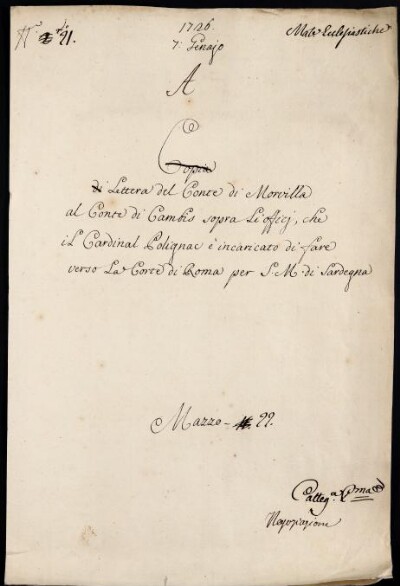 1726.
7: Genajo
Mate Eclesiastiche
21.
A
Copia
di Lettera del Conte di Morvilla
al Conte di Cambis sopra Li officj, che
il Cardinal Polignac è incaricato di fare
verso La Corte di Roma per S. M. di Sardegna
Mazzo - 22.
Catteg.a Roma
Negoziazione